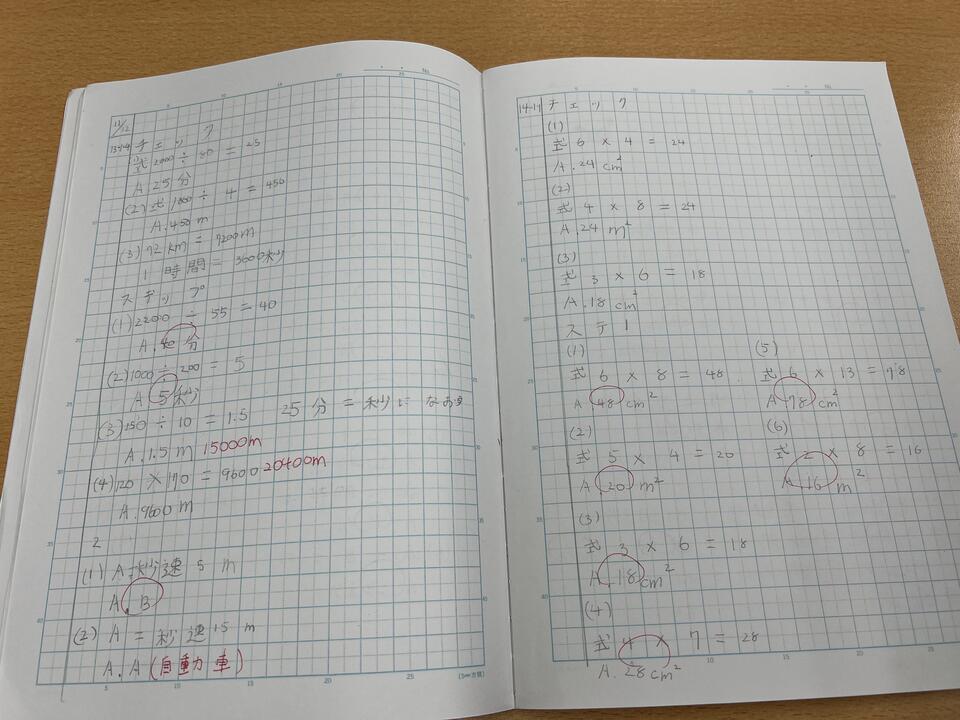 11/12
チェック
式2000÷80=25
A.25分
(2)式1000÷4=450
A.450m
(3)72km=7200m
1時間=3600秒
ステップ
(1)2200÷55=40
A.40分
(2)1000÷200=5
A.5秒
(3)150÷10=1.5 25分=秒になおす
A.1.5m 15000m
(4)120×170=9600 20400m
A.9600m
2
(1)A=秒速5m
A.B
(2)A=秒速15m
A.A(自動車)
(5mm方眼)
14-11 チェック
(1)
式6×4=24
A.24cm²
(2)
式4×8=24
A.24m²
(3)
式3×6=18
A.18cm²
ステ1
(1)
式6×8=48
A.48cm²
(2)
式5×4=20
A.20m²
(3)
式3×6=18
A.18cm²
(4)
式4×7=28
A.28cm²
(5)
式6×13=78
A.78cm²
(6)
式2×8=16
A.16m²